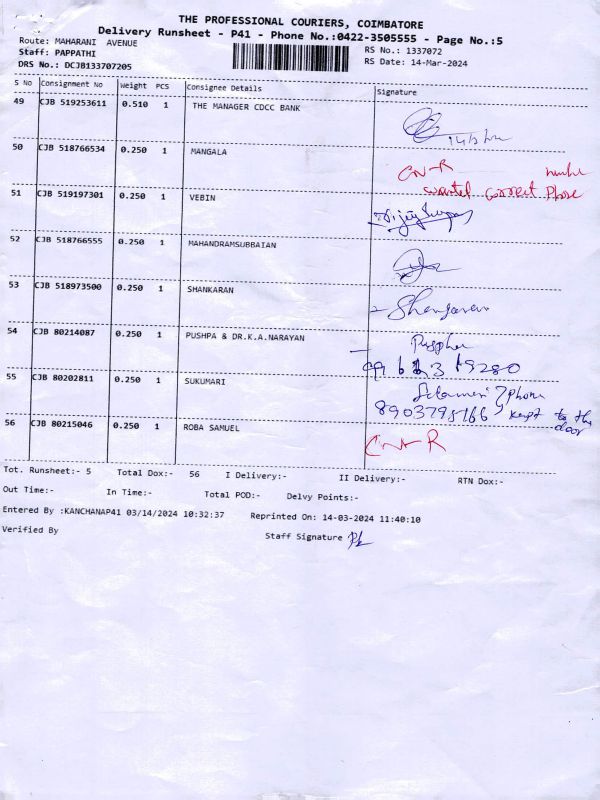 THE PROFESSIONAL COURIERS, COIMBATORE
Delivery Runsheet - P41 - Phone No.:0422-3505555 - Page No.:5
Route: MAHARANI AVENUE RS No.: 1337072
Staff: PAPPATHI RS Date: 14-Mar-2024
DRS No.: DCJB133707205
S No Consignment No Weight PCS Consignee Details Signature
49 CJB 519253611 0.510 1 THE MANAGER CDCC BANK
50 CJB 518766534 0.250 1 MANGALA CN-R number
wanted correct phone
51 CJB 519197301 0.250 1 VEBIN
52 CJB 518766555 0.250 1 MAHANDRAMSUBBAIAN
53 CJB 518973500 0.250 1 SHANKARAN
54 CJB 80214087 0.250 1 PUSHPA & DR.K.A.NARAYAN
55 CJB 80202811 0.250 1 SUKUMARI phone
kept to the
door
56 CJB 80215046 0.250 1 ROBA SAMUEL
Tot. Runsheet:- 5 Total Dox:- 56 I Delivery:- II Delivery:- RTN Dox:-
Out Time:- In Time:- Total POD:- Delvy Points:-
Entered By :KANCHANAP41 03/14/2024 10:32:37 Reprinted On: 14-03-2024 11:40:10
Verified By Staff Signature